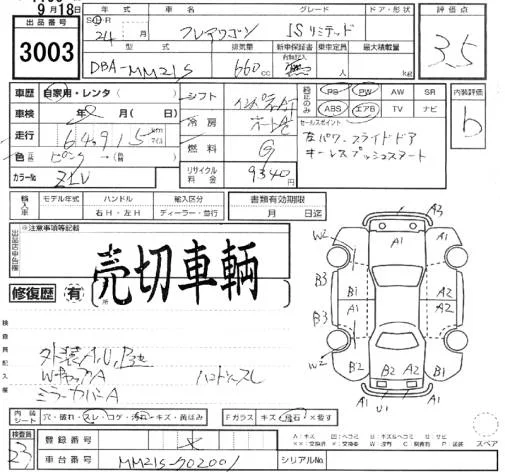 9月18日
出品番号
3003
年式
車名
グレード
ドア・形状
評価点
S H R
24 月
フレアワゴン
ISリミテッド
3.5
型式
排気量
新車保証書
乗車定員
最大積載量
DBA-MM21S
660cc
kg
車歴
自家用・レンタ( )
車検
年 月( 日)
走行
64,915 km マイル
色
ピンク→( )
カラーNo
ZLV
シフト
インパネAT
冷房
オートAC
燃料
G
リサイクル料金
9340円
PS PW AW SR
ABS エアB TV ナビ
内装評価
b
セールスポイント
左パワースライドドア
キーレスプッシュスタート
輸入車
モデル年式
ハンドル
右H・左H
輸入区分
ディーラー・並行
書類有効期限
月 日迄
※注意事項等記載
売切車輌
修復歴
有
検査員記入欄
外装A,U,P
WキャップA
ミラーカバーA
A3
A1
W2
A1
A1
B3
B1
A2
B3
A1
A2
W2
B2
B2 A2
A2
A1
U1
A1
スペア
内装シート
穴・破れ・スレ・コゲ・汚れ・キズ・黄ばみ
Fガラス
キズ・飛石・X要す
検査員
23
登録番号
車台番号
MM21S-702001
シリアルNo.